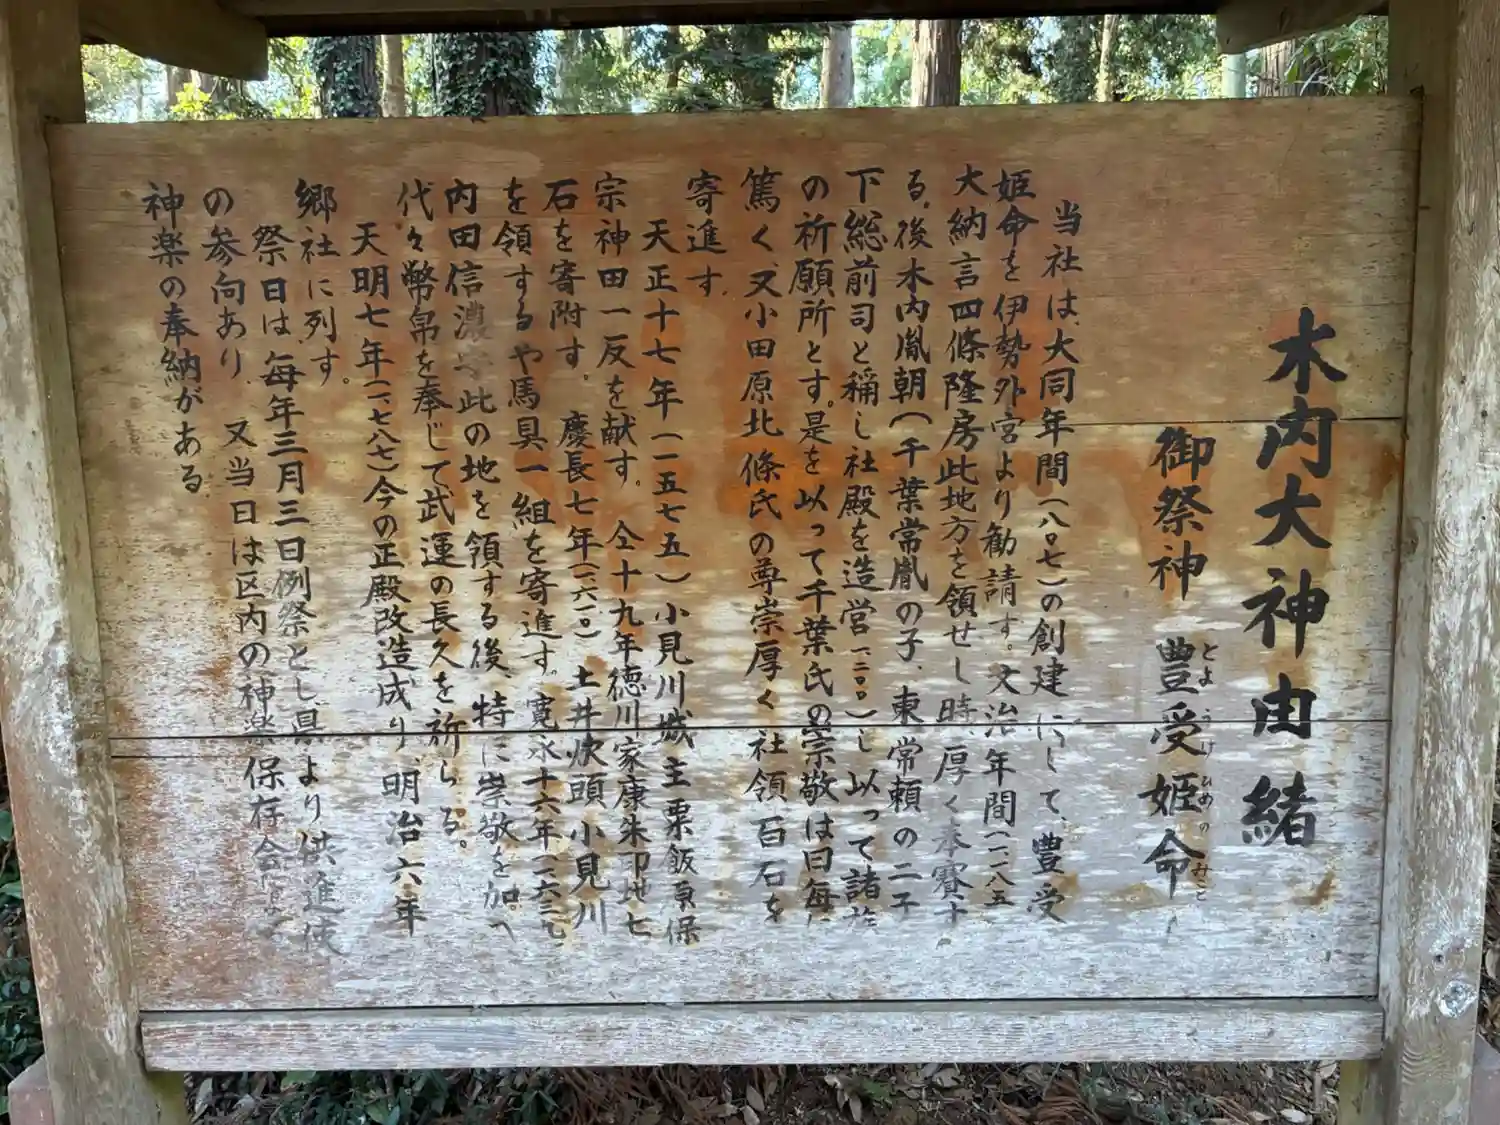 木内大神由緒
御祭神 豊受姫命
とようけひめのみこ
当社は、大同年間(八〇七)の創建にして、豊受
姫命を伊勢外宮より勧請す。文治年間(一一八五
大納言四條隆房此地方を領せし時、厚く奉賽す
る、後木内胤朝(千葉常胤の子、東常頼の二子
下総前司と稱し社殿を造営(一二〇〇)し以って諸
の祈願所とす。是を以って千葉氏の崇敬は日毎
篤く、又小田原北條氏の尊崇厚く社領百石を
寄進す、
天正十七年(一五七五)小見川城主粟飯原保
宗神田一反を献す。仝十九年徳川家康朱印地七
石を寄附す。慶長七年(一六一〇)土井炊頭小見川
を領するや馬具一組を寄進す。寛永十六年(一六三七
内田信濃守此の地を領する後、特に崇敬を加へ
代々幣帛を奉じて武運の長久を祈らる。
天明七年(一七八七)今の正殿改造成り、明治六年
郷社に列す。
祭日は毎年三月三日例祭とし県より供進使
の参向あり、又当日は区内の神楽保存会
神楽の奉納がある